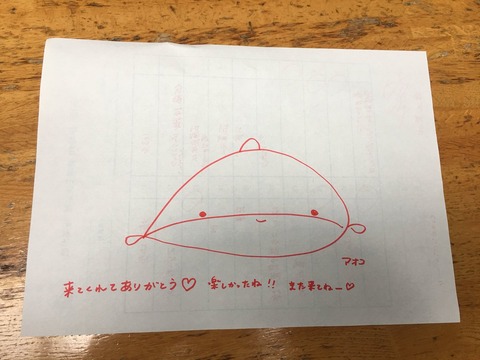 アオコ
来てくれてありがとう♡ 楽しかったね!! また来てねー♡